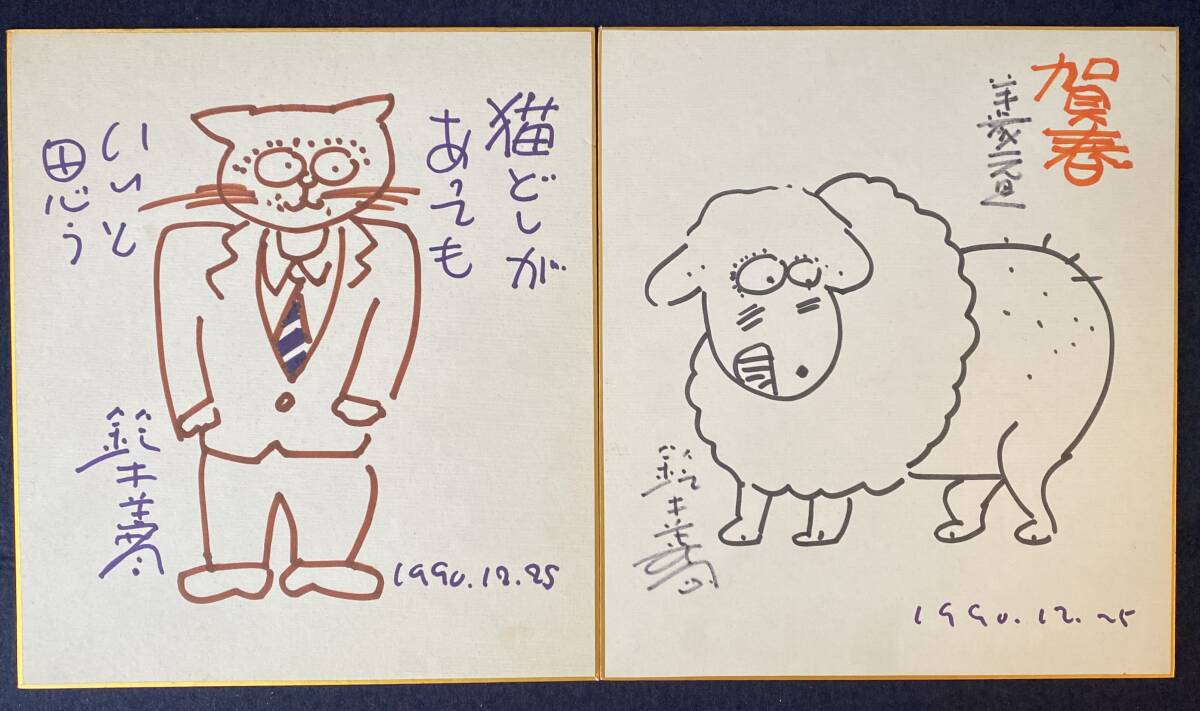 猫どしが
あっても
いいと
思う
鈴木
1990.12.25
賀春
羊歳元旦
鈴木
1990.12.25